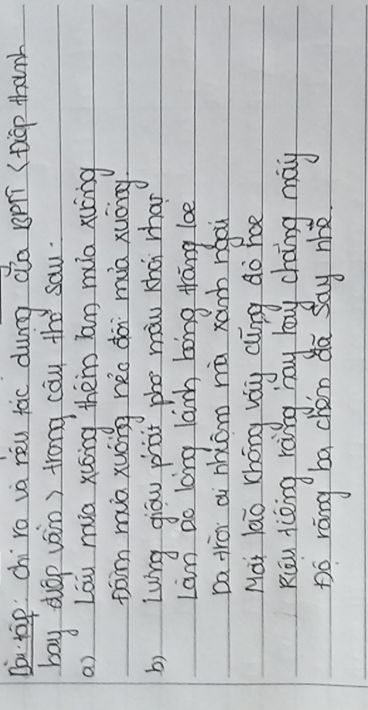 Bài tập: chỉ ra và nêu tác dụng của BPTT (Điệp thanh
hay điệp vần) trong câu thơ sau.
a) Lầu mưa xuống thềm lan mưa xuống
Đầm mưa xuống nẻo đồi mưa xuống
b) Lưng giậu phất phơ màu khói nhạt
Làn ao lóng lánh bóng trăng loe
Da trời ai nhuộm mà xanh ngắt
Mắt lão không vầy cũng đỏ hoe
Rượu tiếng rằng hay hay chẳng mấy
Độ răng ba chén đã say nhè.